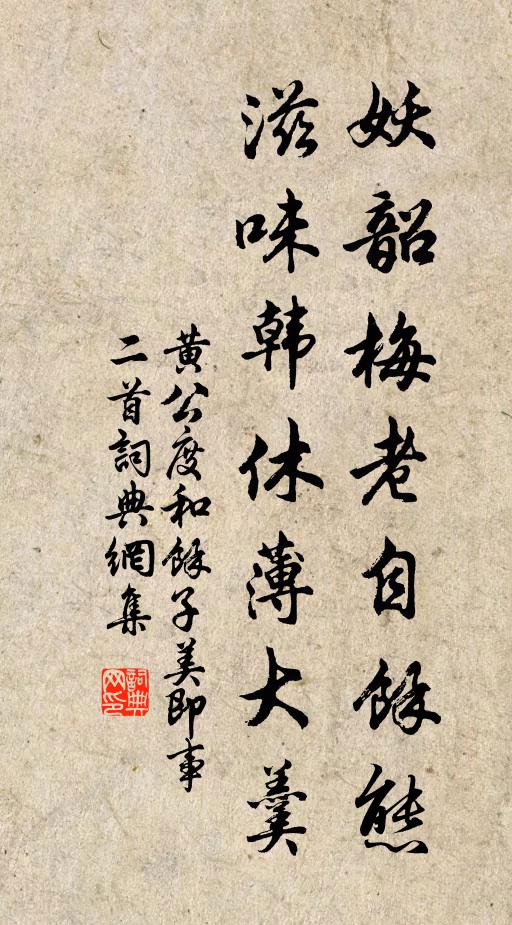 妖韶梅老自餘態
滋味韩休薄大羹
黄公度和餘子美即事
二首詞典網集
詞典网印